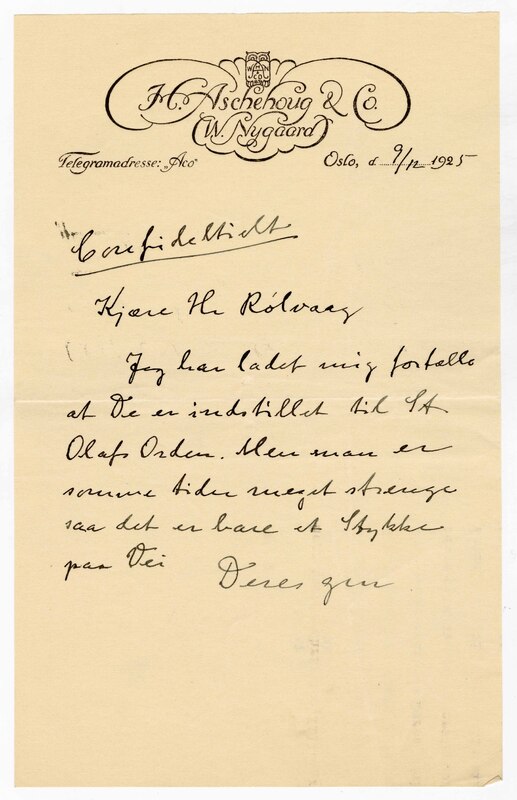 H. Aschehoug & Co.
(W. Nygaard)
Telegramadresse: „Aco“
Oslo, d 9/12 1925
Confidentielt
Kjære Hr Rölvaag
Jeg har ladet mig fortælle
at De er indstillet til St
Olafs Orden. Men man er
somme tider meget strenge
saa det er bare et Stykke
paa Vei
Deres